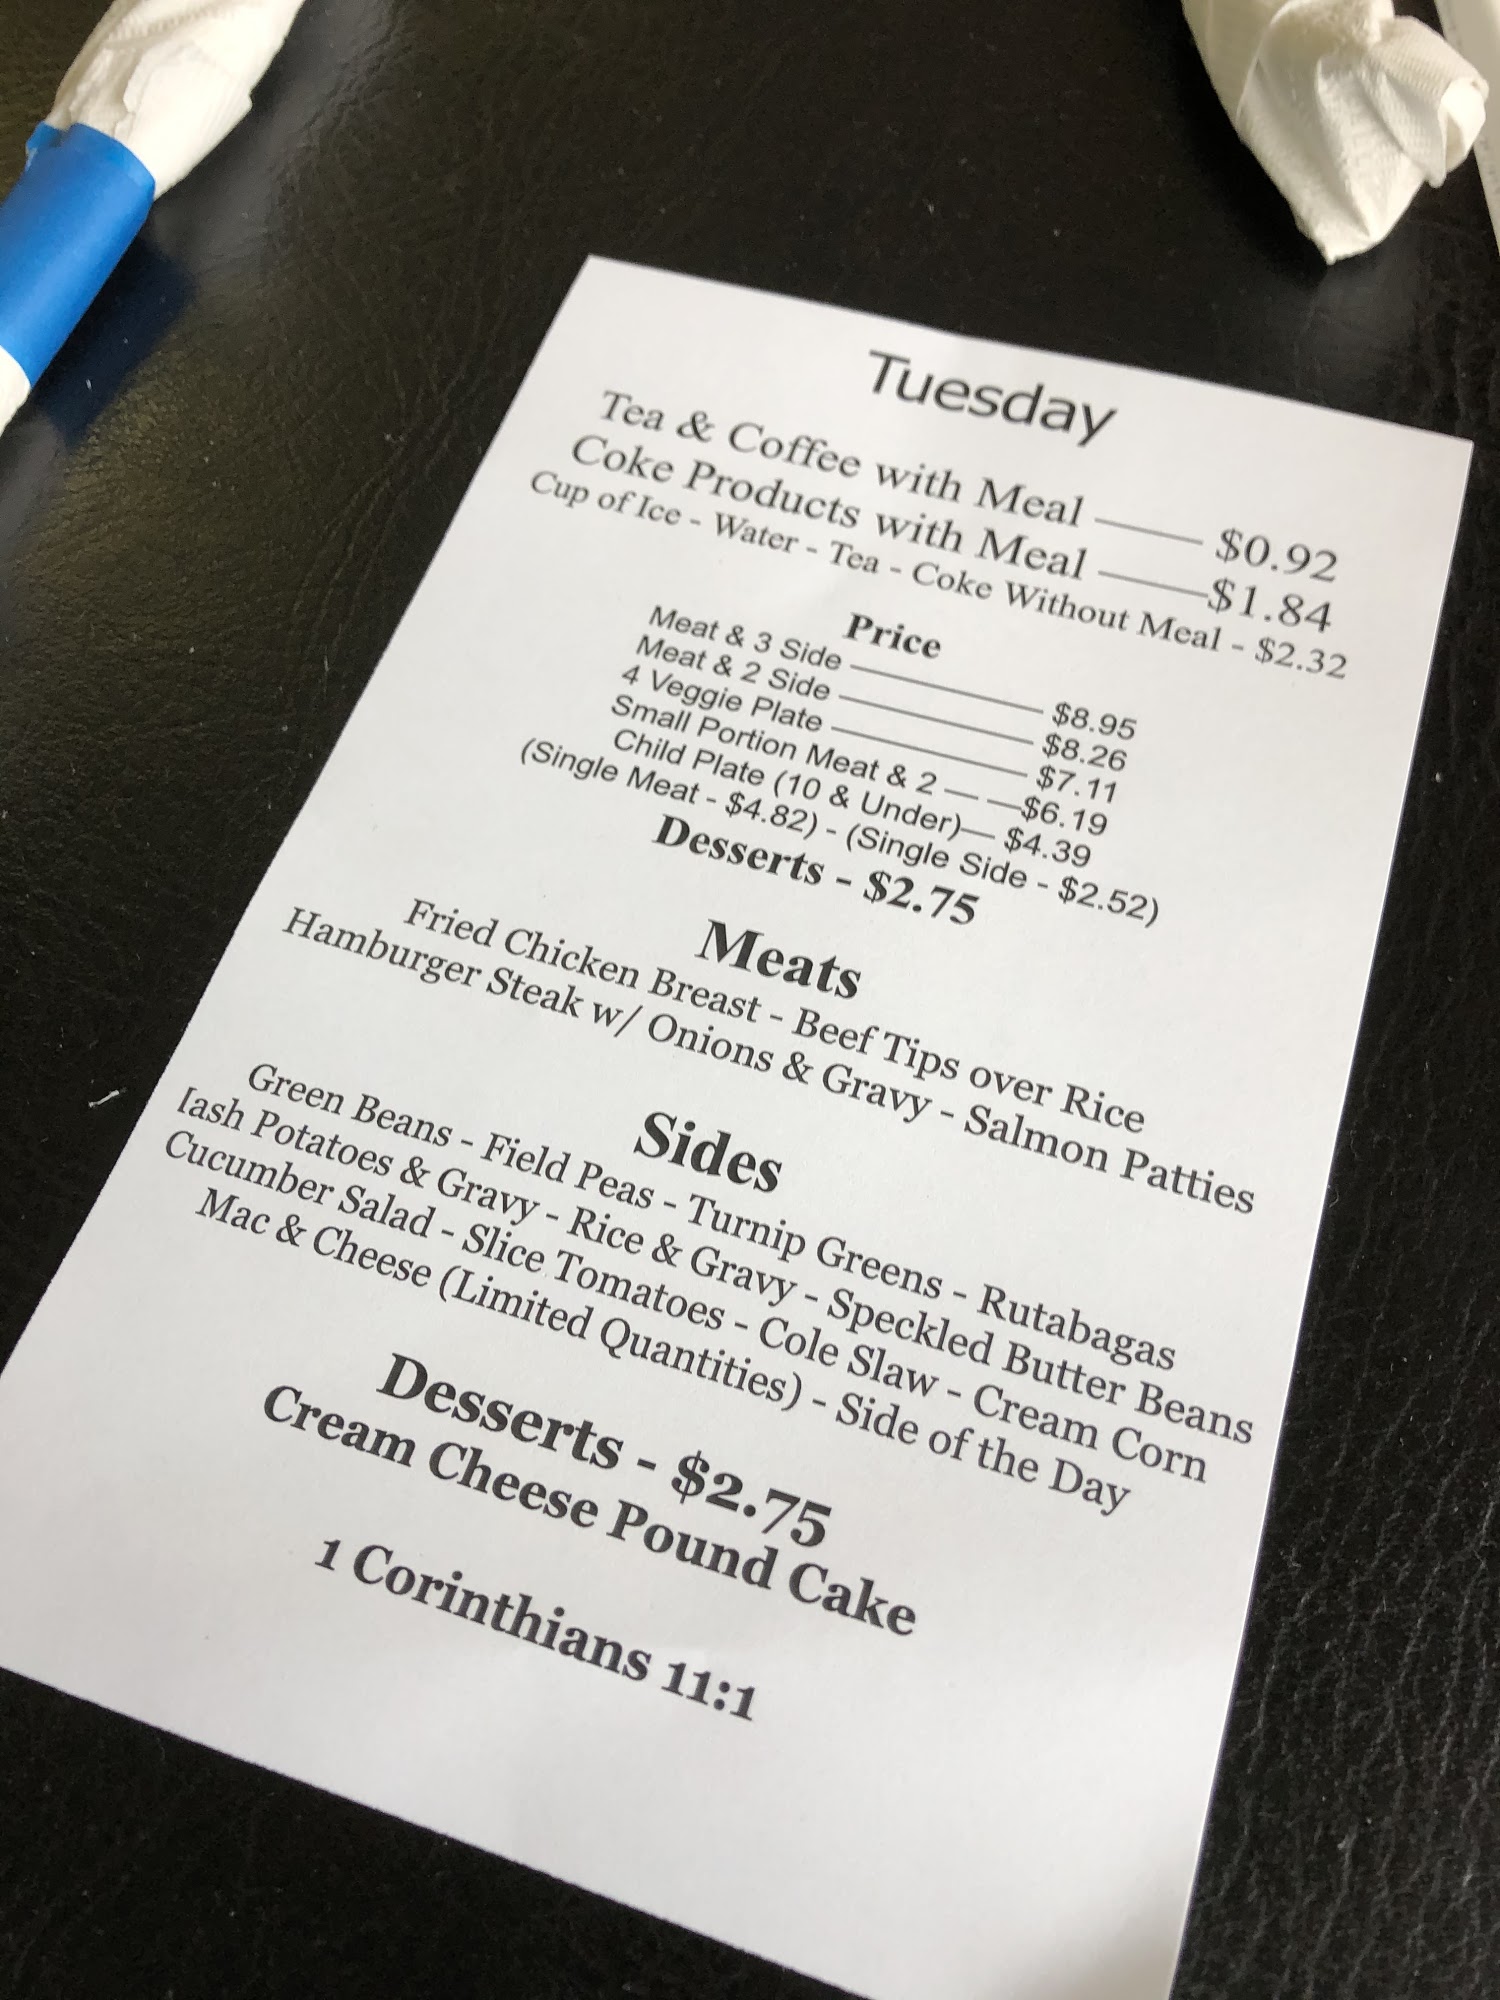 Tuesday
Tea & Coffee with Meal —— $0.92
Coke Products with Meal ——$1.84
Cup of Ice - Water - Tea - Coke Without Meal - $2.32
Price
Meat & 3 Side —————— $8.95
Meat & 2 Side —————— $8.26
4 Veggie Plate —————— $7.11
Small Portion Meat & 2 — —$6.19
Child Plate (10 & Under)— $4.39
(Single Meat - $4.82) - (Single Side - $2.52)
Desserts - $2.75
Meats
Fried Chicken Breast - Beef Tips over Rice
Hamburger Steak w/ Onions & Gravy - Salmon Patties
Sides
Green Beans - Field Peas - Turnip Greens - Rutabagas
[ash Potatoes & Gravy - Rice & Gravy - Speckled Butter Beans
Cucumber Salad - Slice Tomatoes - Cole Slaw - Cream Corn
Mac & Cheese (Limited Quantities) - Side of the Day
Desserts - $2.75
Cream Cheese Pound Cake
1 Corinthians 11:1